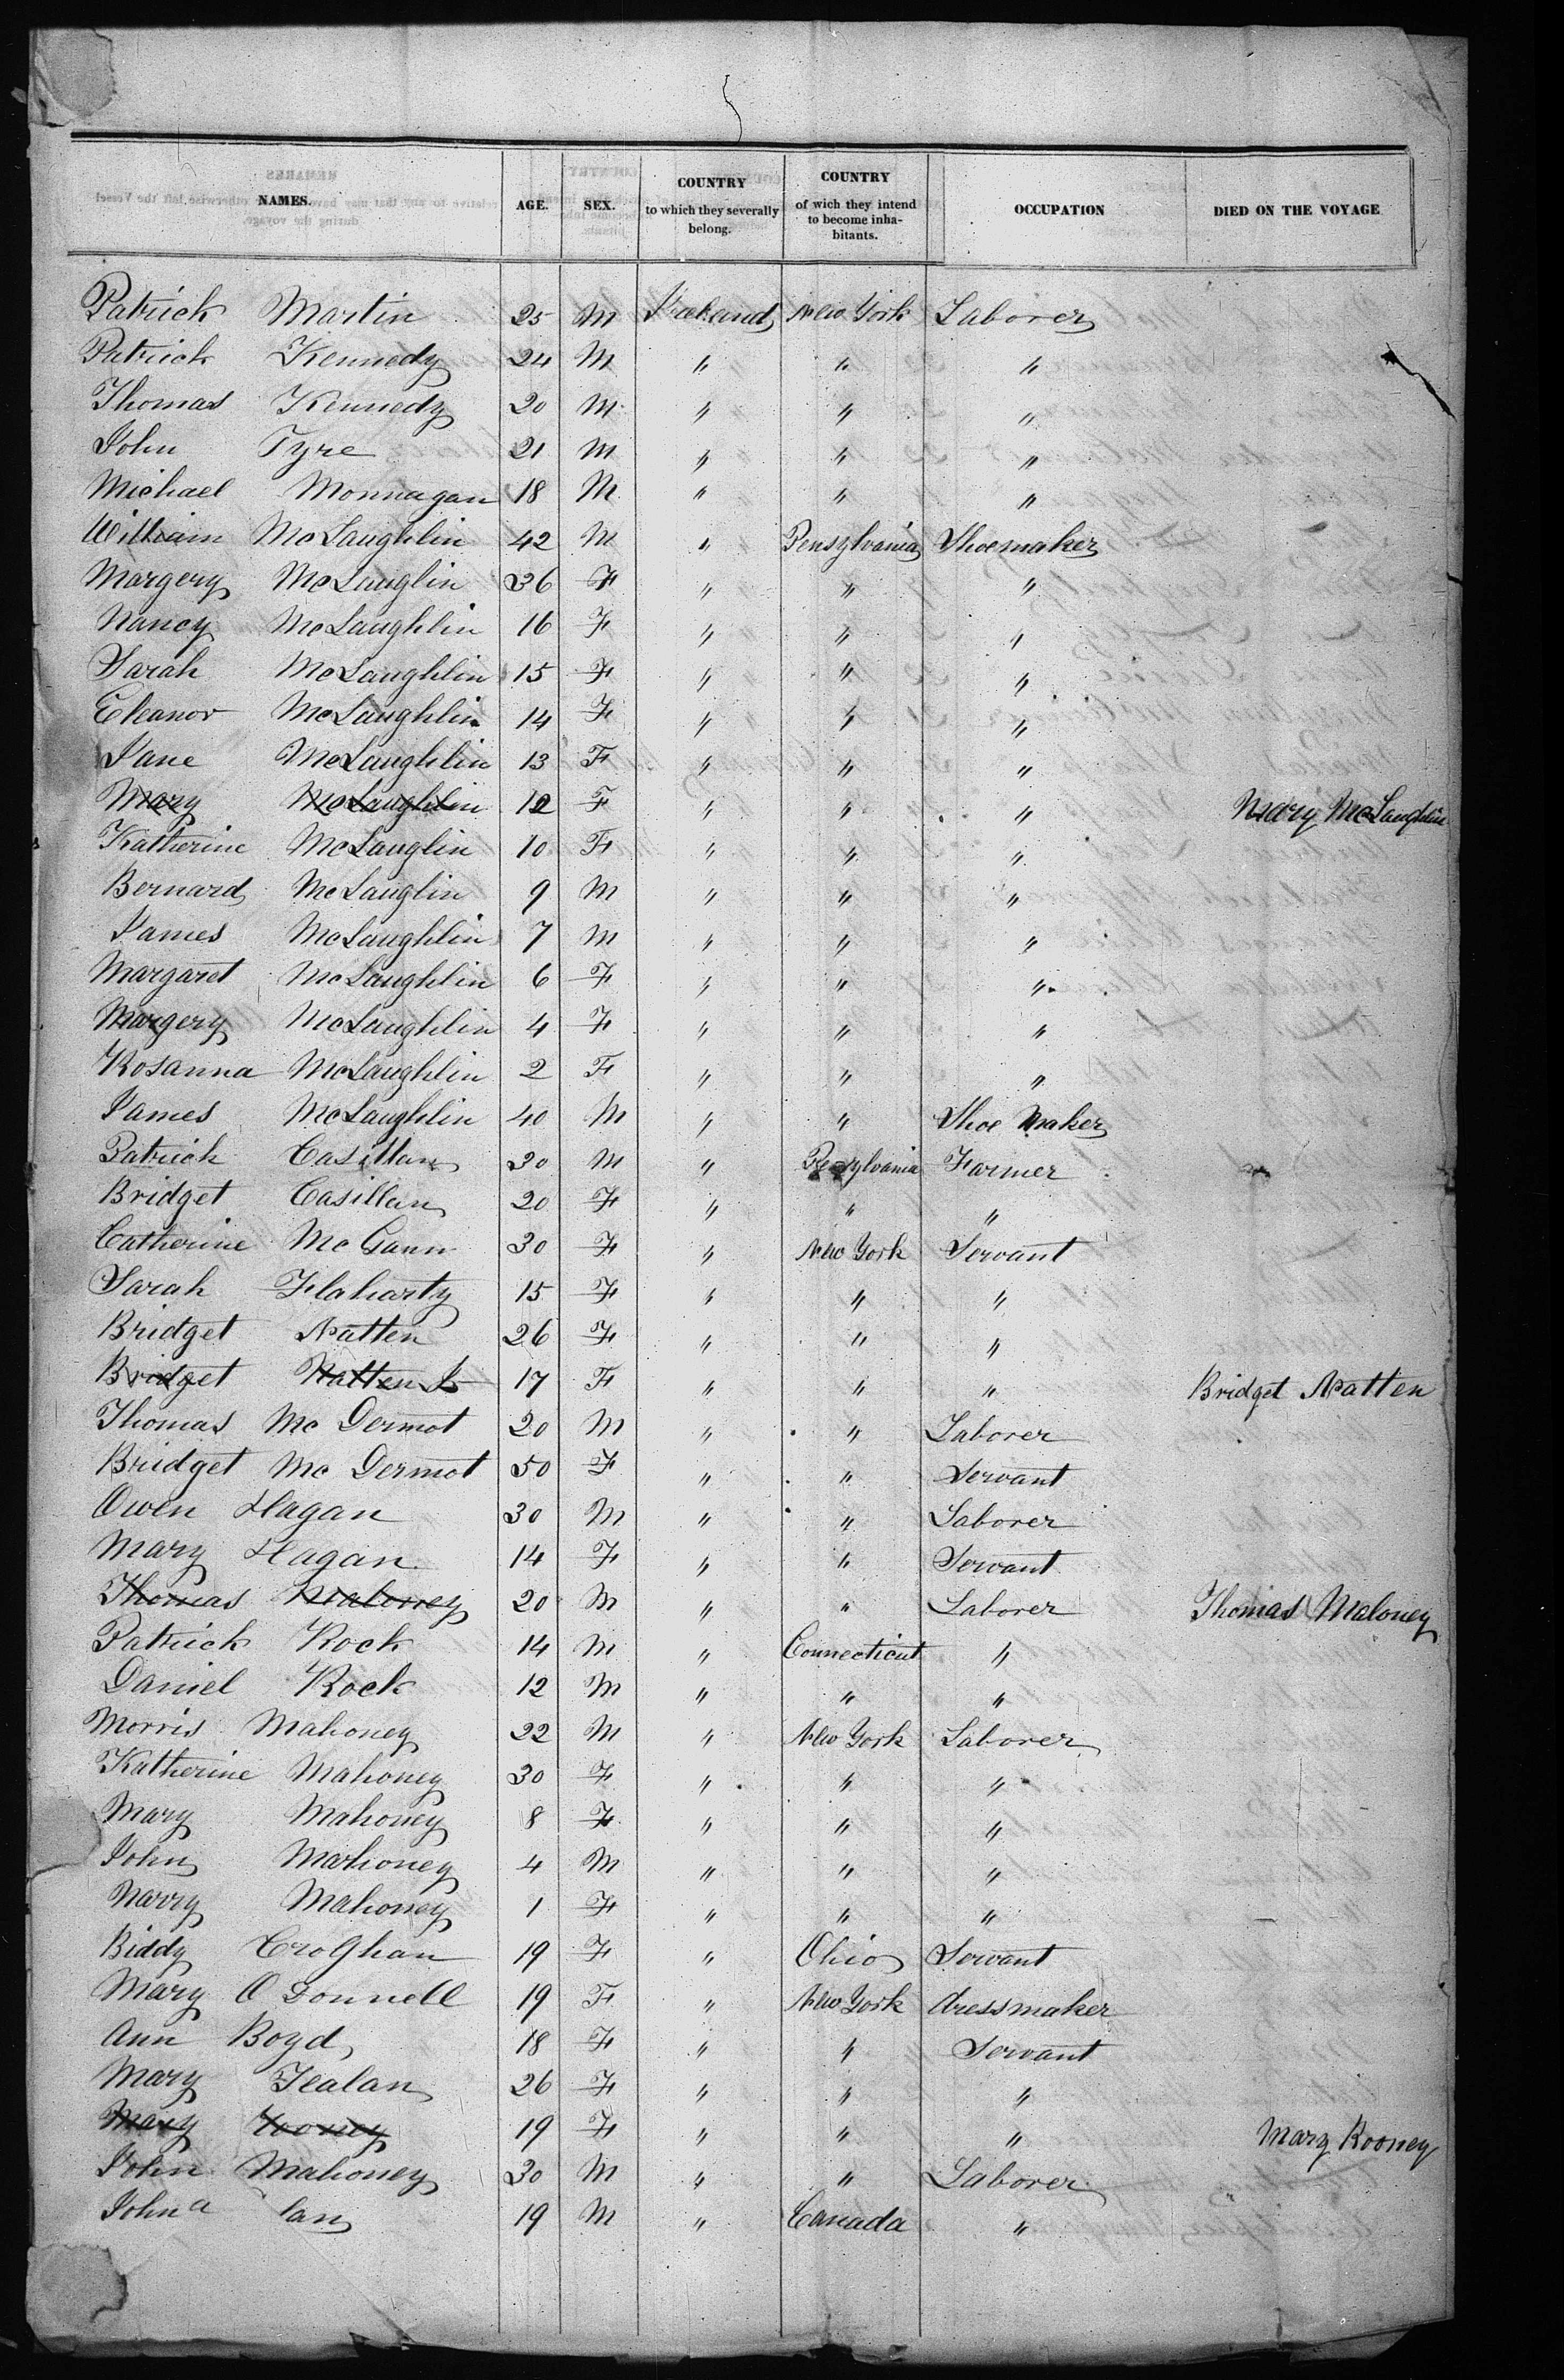 NAMES. AGE. SEX. COUNTRY to which they severally belong. COUNTRY of wich they intend to become inha-bitants. OCCUPATION DIED ON THE VOYAGE
Patrick Martin 25 M Ireland New York Laborer
Patrick Kennedy 24 M " " "
Thomas Kennedy 20 M " " "
John Tyre 21 M " " "
Michael Monnagan 18 M " " "
William McLaughlin 42 M " Pensylvania Shoemaker
Margery McLauglin 36 F " " "
Nancy McLaughlin 16 F " " "
Sarah McLaughlin 15 F " " "
Eleanor McLaughlin 14 F " " "
Jane McLaughlin 13 F " " "
Mary McLaughlin 12 F " " " Mary McLaughlin
Katherine McLauglin 10 F " " "
Bernard McLauglin 9 M " " "
James McLaughlin 7 M " " "
Margaret McLaughlin 6 F " " "
Margery McLaughlin 4 F " " "
Rosanna McLaughlin 2 F " " "
James McLaughlin 40 M " " Shoe Maker
Patrick Casillan 30 M " Farmer
Bridget Casillan 20 F " " "
Catherine McGann 30 F " New York Servant
Sarah Flaharty 15 F " " "
Bridget Natten 26 F " " "
Bridget Natten Jr 17 F " " " Bridget Natten
Thomas Mc Dermot 20 M " " Laborer
Bridget Mc Dermot 50 F " " Servant
Owen Hagan 30 M " " Laborer
Mary Hagan 14 F " " Servant
Thomas Maloney 20 M " " Laborer Thomas Maloney
Patrick Rock 14 M " Connecticut "
Daniel Rock 12 M " " "
Morris Mahoney 22 M " New York Laborer
Katherine Mahoney 30 F " " "
Mary Mahoney 8 F " " "
John Mahoney 4 M " " "
Mahoney 1 F " " "
Biddy Croghan 19 F " Ohio Servant
Mary O Donnell 19 F " New York dressmaker
Ann Boyd 18 F " " Servant
Mary Fealan 26 F " " "
Mary Rooney 19 F " " " Mary Rooney
John Mahoney 30 M " " Laborer
John a lan 19 M " Canada "